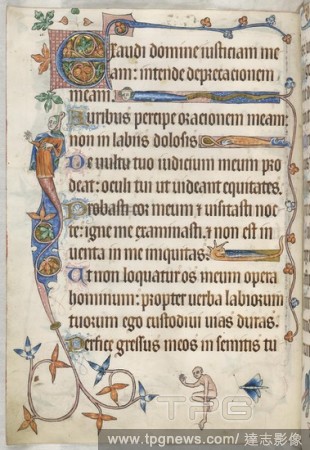 Exaudi domine iusticiam me
am: intende deprecacionem
meam.
Auribus percipe oracionem meam:
non in labiis dolosis
De vultu tuo iudicium meum pro
deat: oculi tui videant equitates.
Probasti cor meum & visitasti noc
te: igne me examinasti, & non est in
venta in me iniquitas.
Ut non loquatur os meum opera
hominum: propter verba labiorum
tuorum ego custodivi vias duras.
Perfice gressus meos in semitis tu
TPG
www.tpgnews.com/ 達志影像